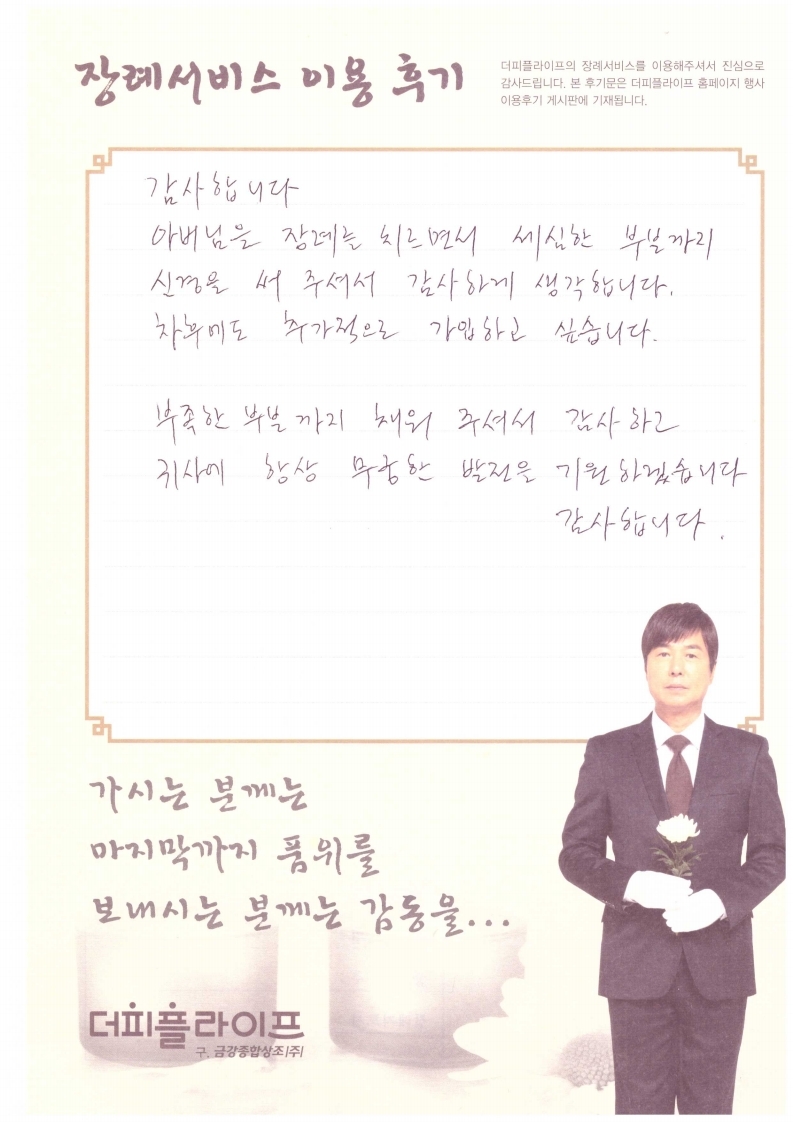 장례서비스 이용 후기
더피플라이프의 장례서비스를 이용해주셔서 진심으로
감사드립니다. 본 후기문은 더피플라이프 홈페이지 행사
이용후기 게시판에 기재됩니다.
감사합니다
아버님을 장례를 치르면서 세심한 부분까지
신경을 써 주셔서 감사하게 생각합니다.
차후에도 추가적으로 가입하고 싶습니다.
부족한 부분까지 채워 주셔서 감사하고
귀사에 항상 무궁한 발전을 기원하겠습니다
감사합니다.
가시는 분께는
마지막까지 품위를
보내시는 분께는 감동을...
더피플라이프
구. 금강종합상조(주)